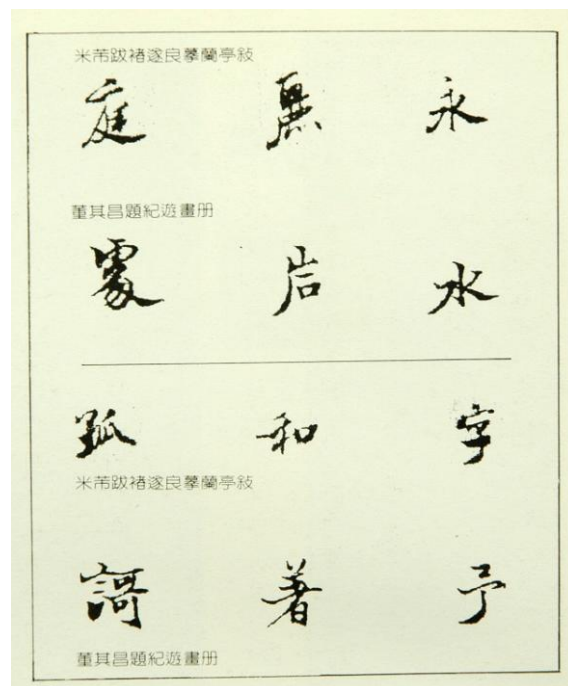 米芾跋褚遂良摹蘭亭敍
庭 永
董其昌題紀遊畫册
岩 水
和 字
米芾跋褚遂良摹蘭亭敍
謌 著 予
董其昌題紀遊畫册